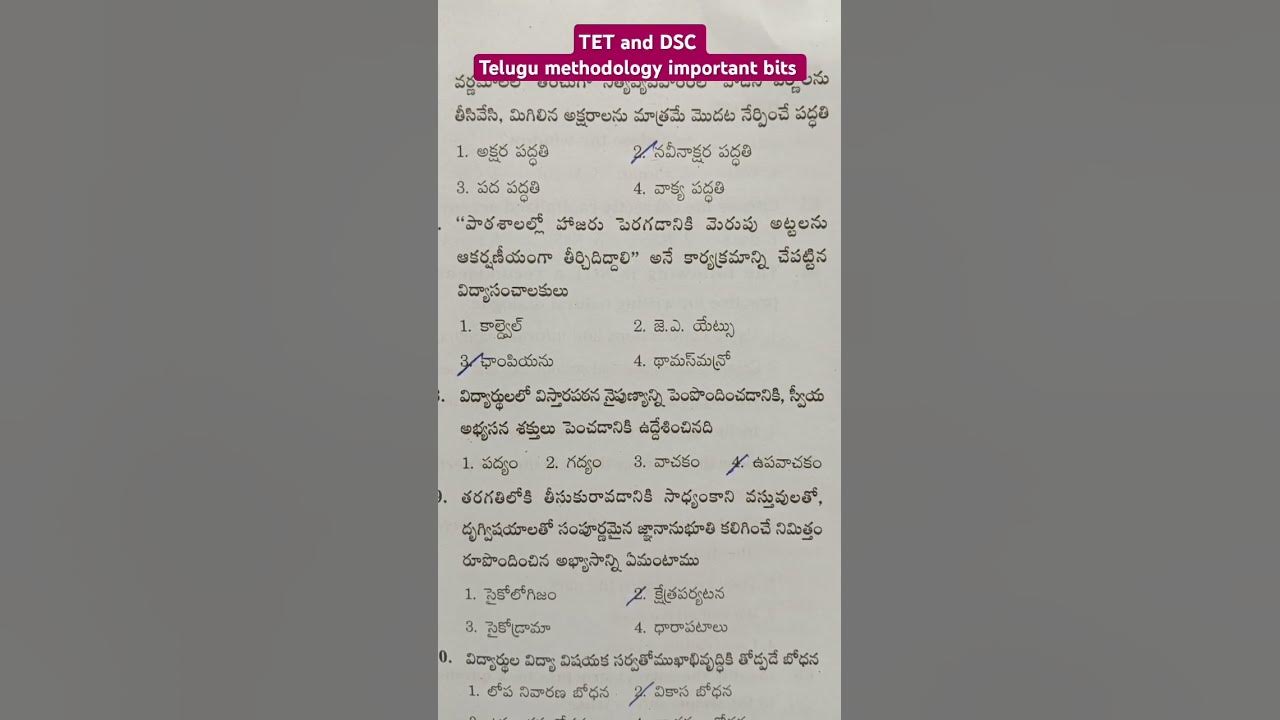 TET and DSC
Telugu methodology important bits
తీసివేసి, మిగిలిన అక్షరాలను మాత్రమే మొదట నేర్పించే పద్ధతి
1. అక్షర పద్ధతి 2. నవీనాక్షర పద్ధతి
3. పద పద్ధతి 4. వాక్య పద్ధతి
. “పాఠశాలల్లో హాజరు పెరగడానికి మెరుపు అట్టలను
ఆకర్షణీయంగా తీర్చిదిద్దాలి” అనే కార్యక్రమాన్ని చేపట్టిన
విద్యాసంచాలకులు
1. కాల్డ్వెల్ 2. జె.ఎ. యేట్సు
3. ఛాంపియను 4. థామస్‌మన్రో
. విద్యార్థులలో విస్తారపఠన నైపుణ్యాన్ని పెంపొందించడానికి, స్వీయ
అభ్యసన శక్తులు పెంచడానికి ఉద్దేశించినది
1. పద్యం 2. గద్యం 3. వాచకం 4. ఉపవాచకం
9. తరగతిలోకి తీసుకురావడానికి సాధ్యంకాని వస్తువులతో,
దృగ్విషయాలతో సంపూర్ణమైన జ్ఞానానుభూతి కలిగించే నిమిత్తం
రూపొందించిన అభ్యాసాన్ని ఏమంటాము
1. సైకోలోగిజం 2. క్షేత్రపర్యటన
3. సైకోడ్రామా 4. ధారాపటాలు
0. విద్యార్థుల విద్యా విషయక సర్వతోముఖాభివృద్ధికి తోడ్పడే బోధన
1. లోప నివారణ బోధన 2. వికాస బోధన